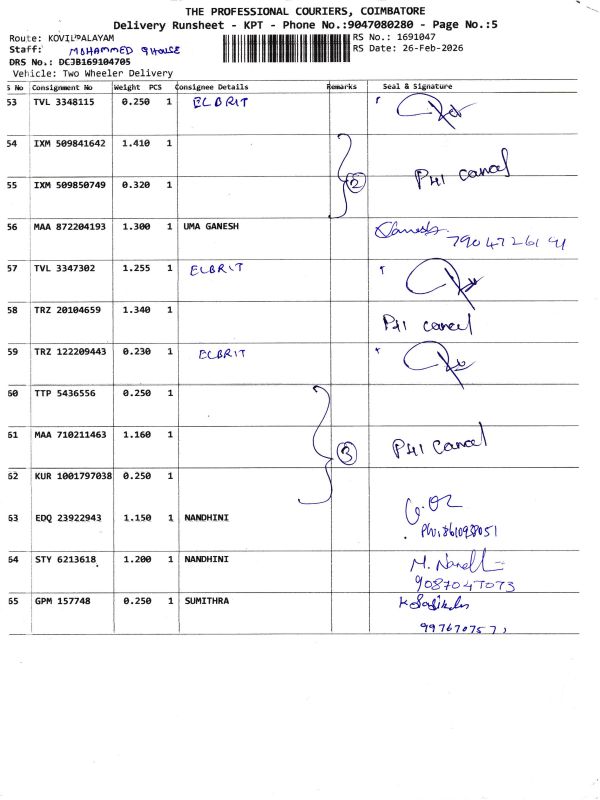 THE PROFESSIONAL COURIERS, COIMBATORE
Delivery Runsheet - KPT - Phone No.:9047080280 - Page No.:5
Route: KOVILPALAYAM
RS No.: 1691047
Staff: MOHAMMED GHOUSE
RS Date: 26-Feb-2026
DRS No.: DCJB169104705
Vehicle: Two Wheeler Delivery
S No Consignment No Weight PCS Consignee Details Remarks Seal & Signature
53 TVL 3348115 0.250 1 ELBRIT
54 IXM 509841642 1.410 1
55 IXM 509850749 0.320 1 2 P41 cancel
56 MAA 872204193 1.300 1 UMA GANESH Ganesh
7904726141
57 TVL 3347302 1.255 1 ELBRIT
58 TRZ 20104659 1.340 1 P41 cancel
59 TRZ 122209443 0.230 1 ELBRIT
60 TTP 5436556 0.250 1
61 MAA 710211463 1.160 1 3 P41 cancel
62 KUR 1001797038 0.250 1
63 EDQ 23922943 1.150 1 NANDHINI
64 STY 6213618 1.200 1 NANDHINI
9087047073
65 GPM 157748 0.250 1 SUMITHRA